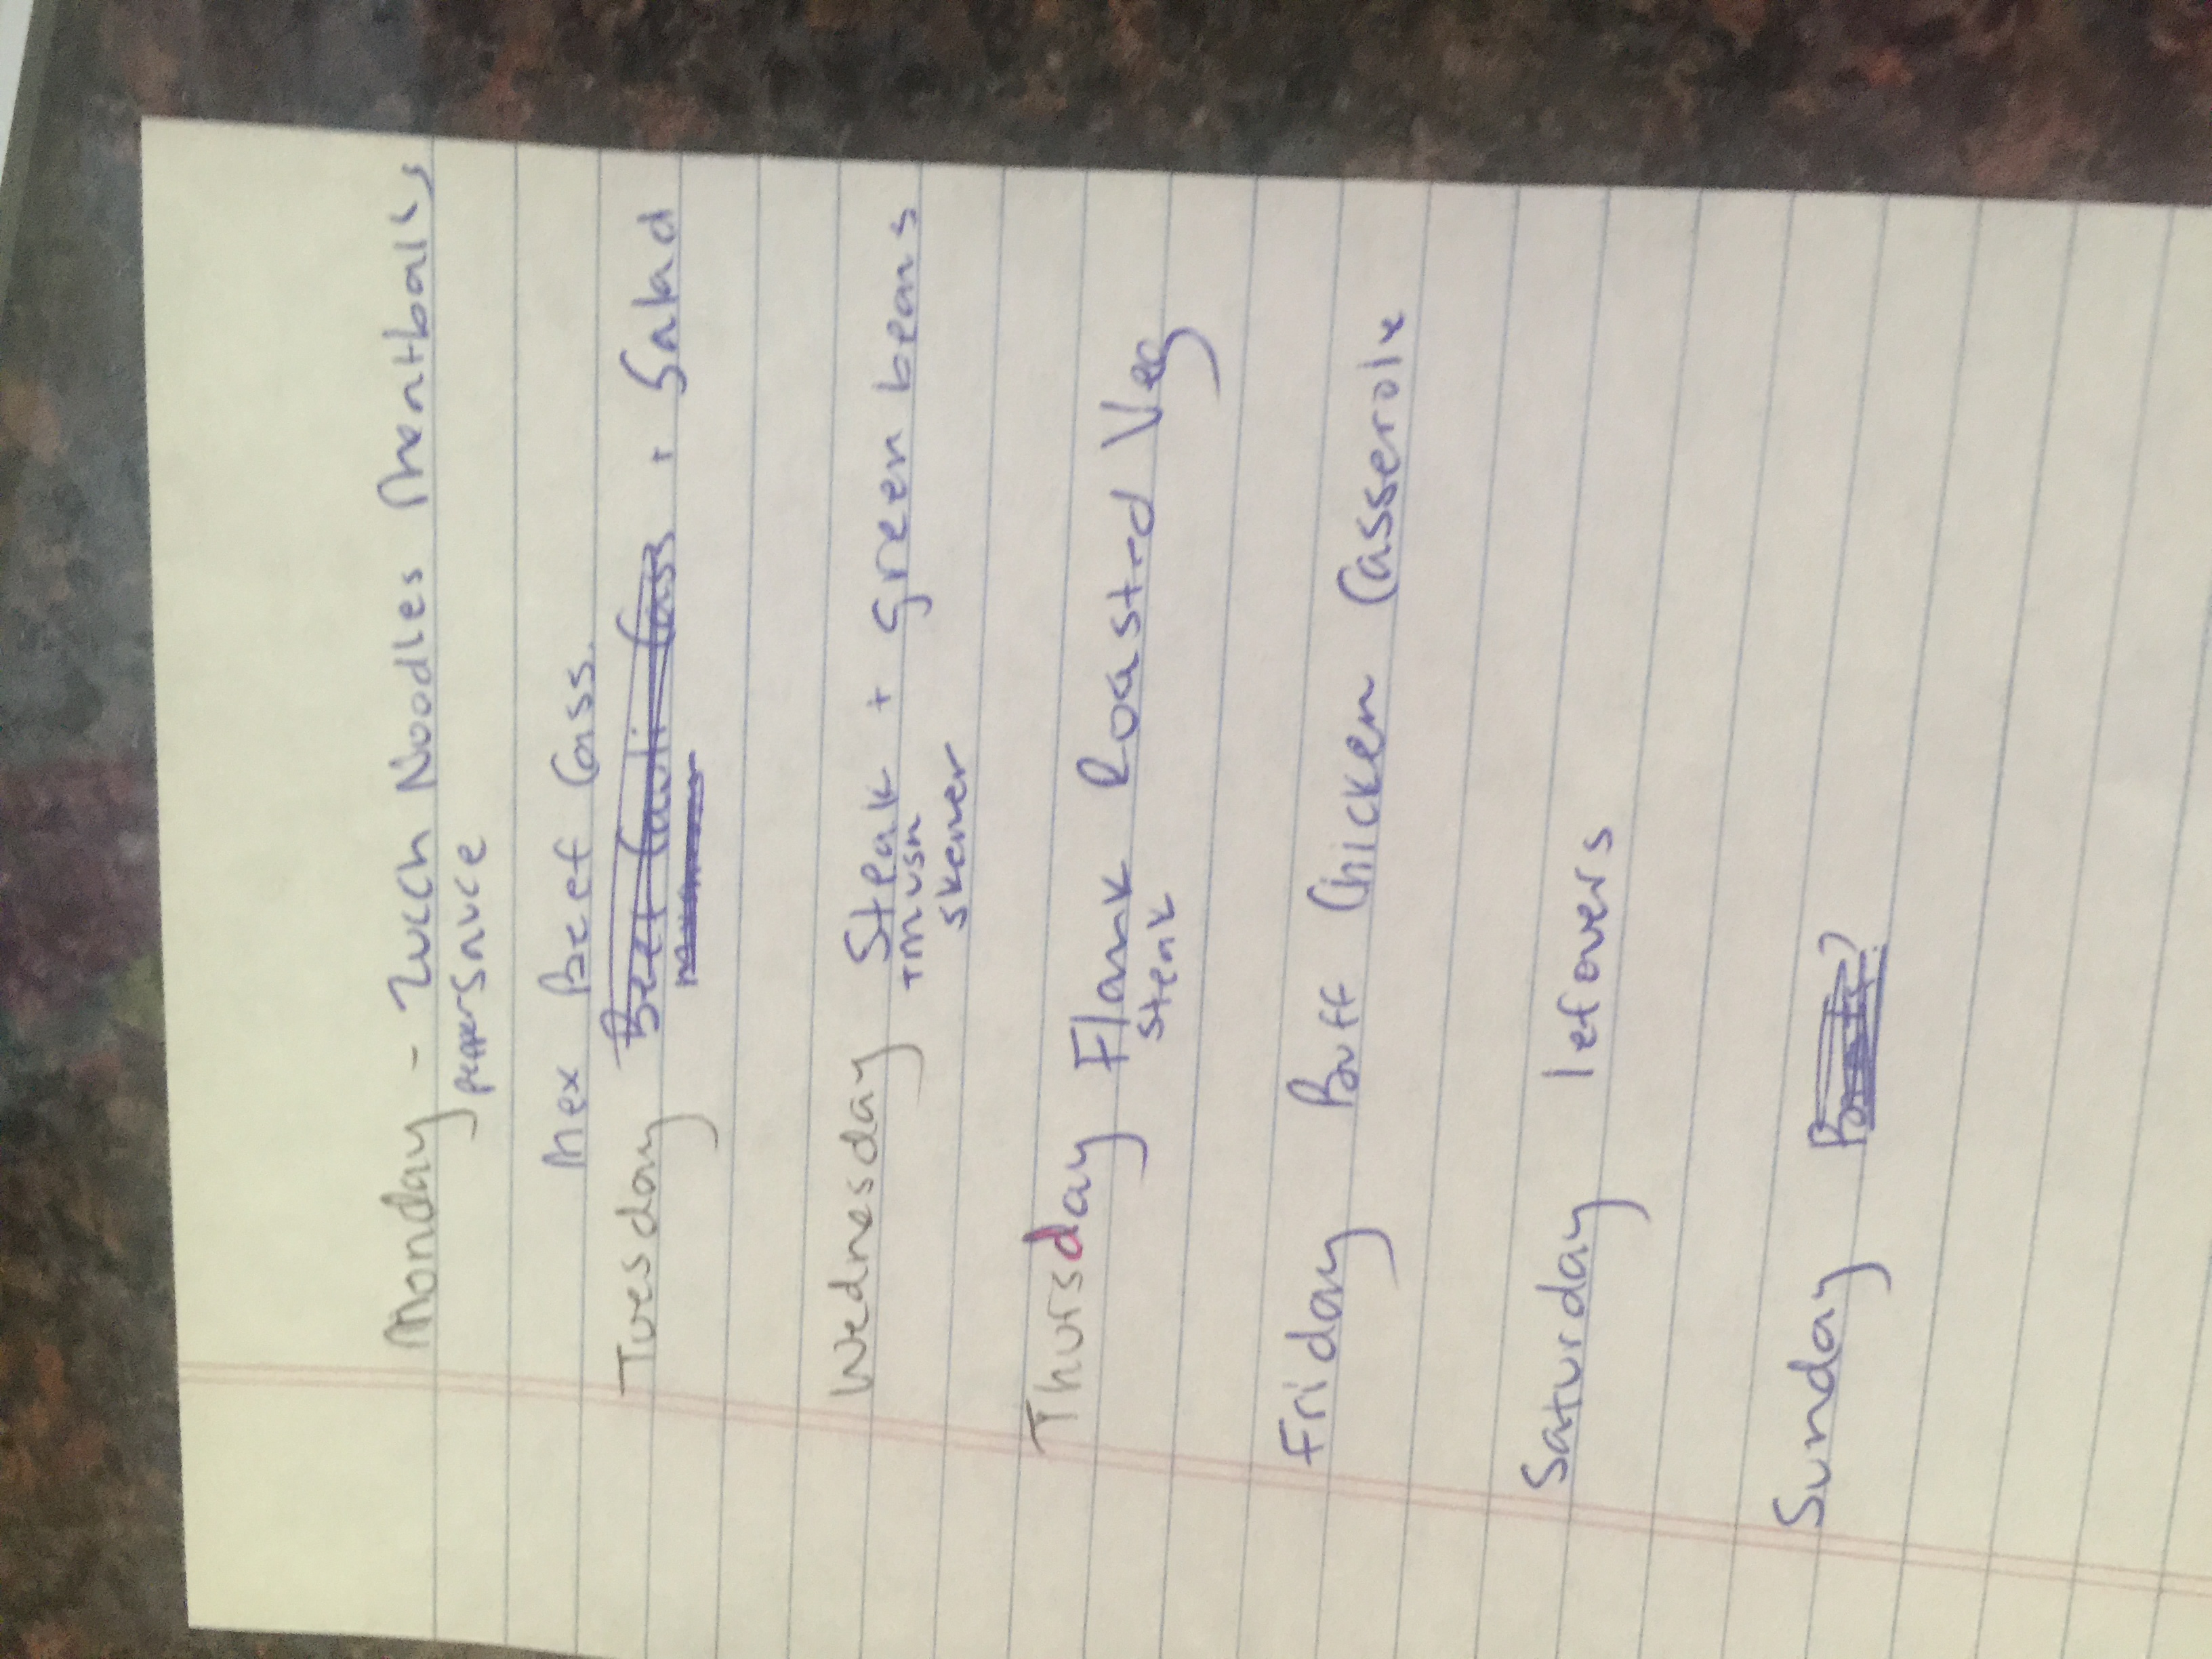 Monday - Zucch Noodles Meatballs
pepper sauce
Mex Beef Cass.
Tuesday Beef Cauli Cass + Salad
Wednesday Steak + green beans
+ Mush
skewer
Thursday Flank Roasted Veg
steak
Friday Buff Chicken Casserole
Saturday lefovers
Sunday ?